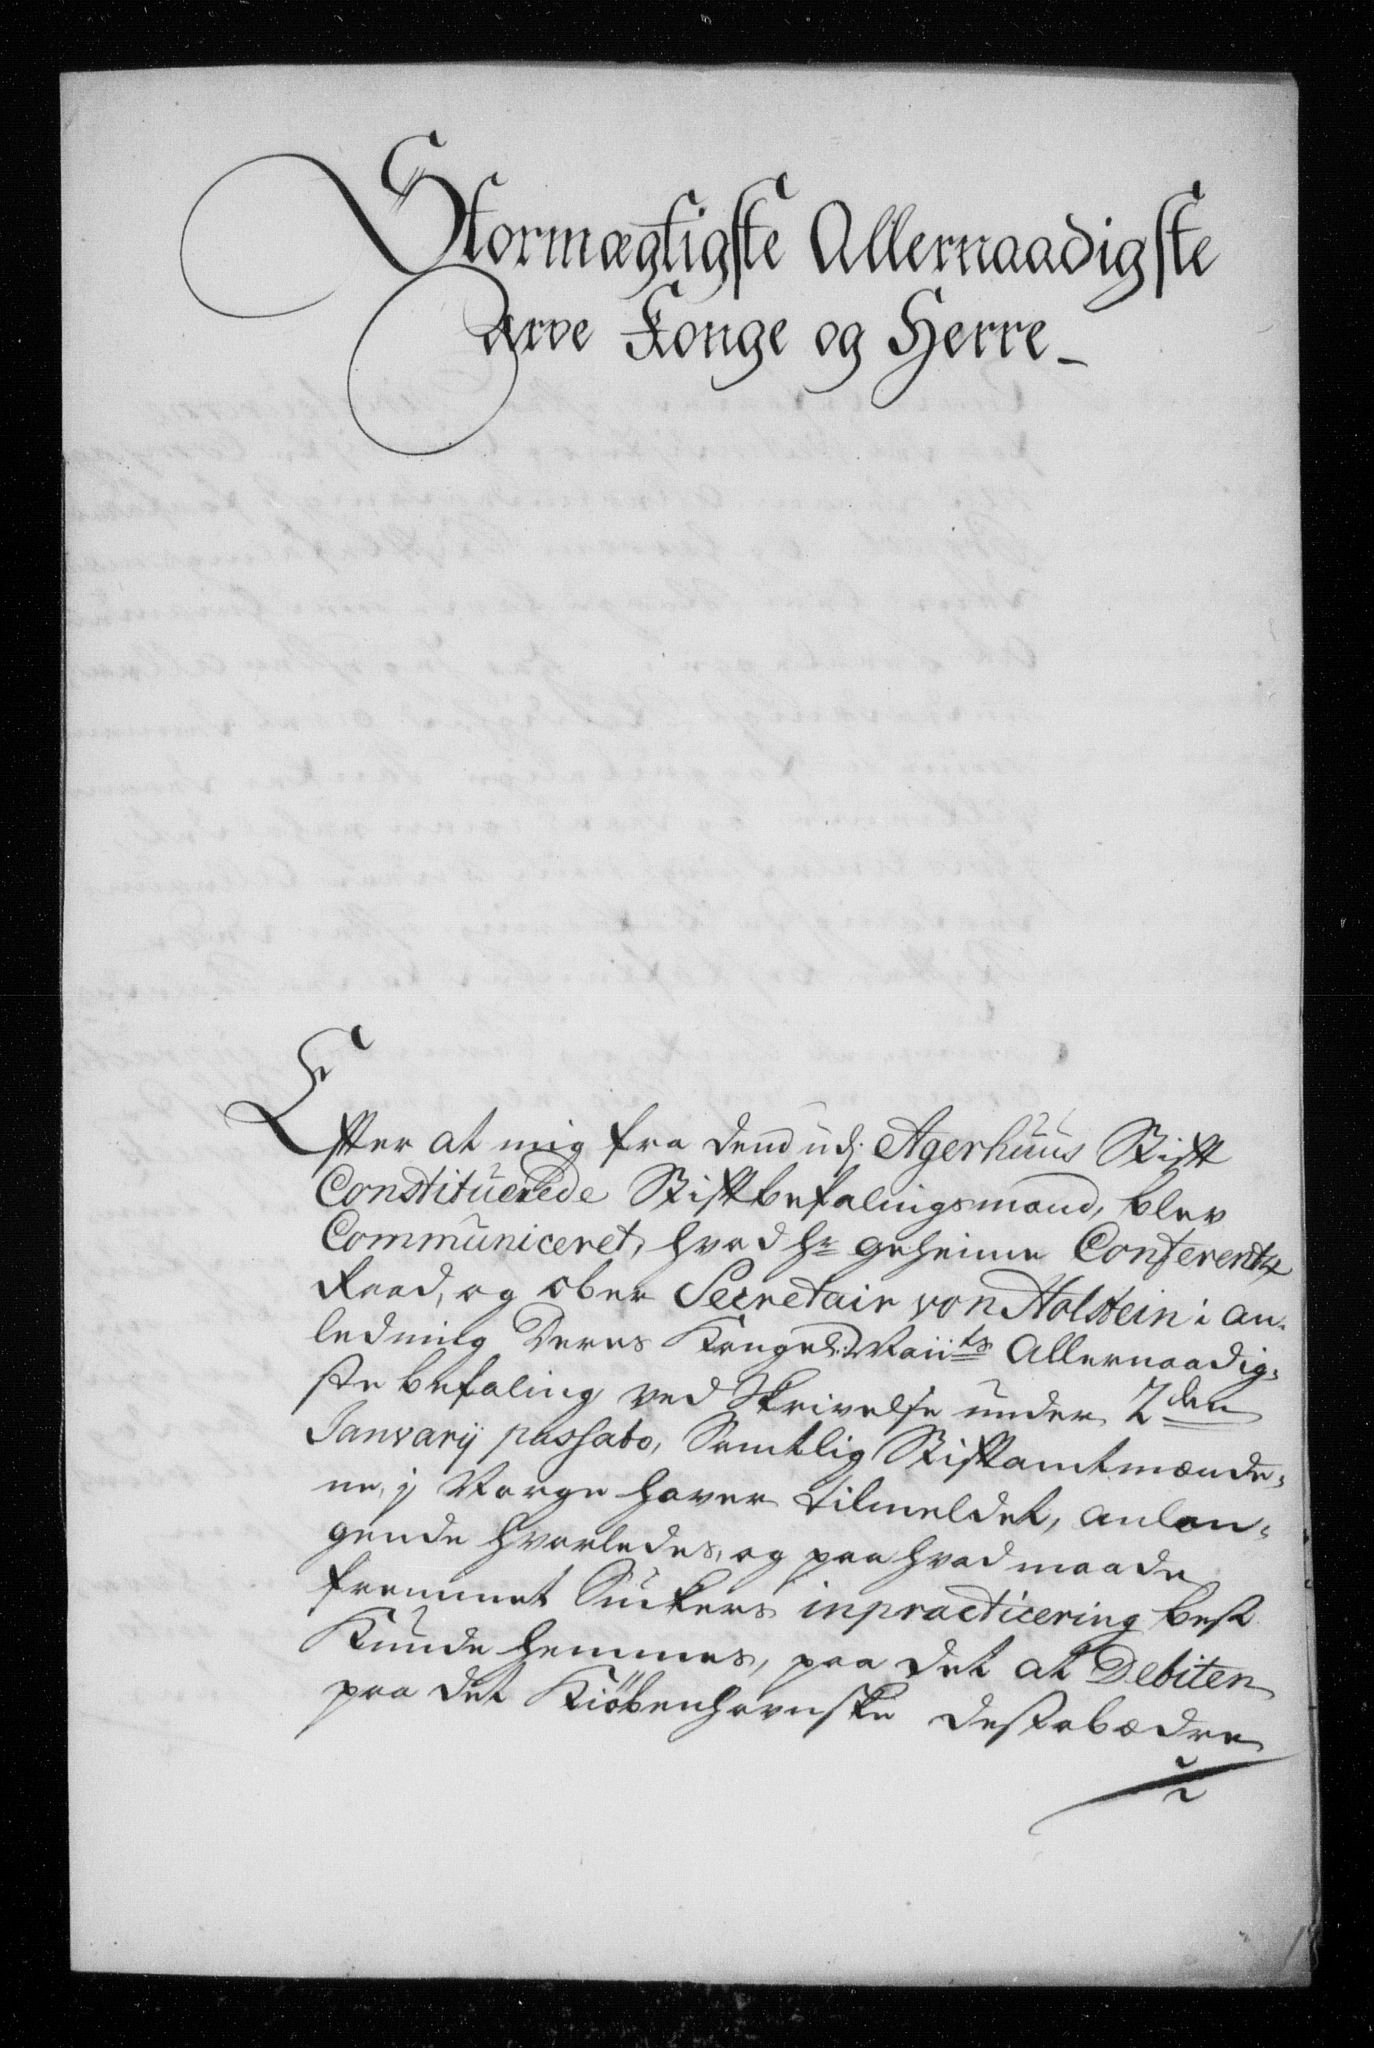 Stormægtigste Allernaadigste
Arve Konge og Herre
Efter at mig fra dend udj Agerhuus Stift
Constituerede Stiftbefalingsmand, blev
Communiceret, hvad Hr geheime Conferentz
Raad, og ober Secretair von Holstein i an-
ledning Deres Kongel: Maiits Allernaadig-
ste befaling ved Skrivelse under 2den
Januarij passato, Samtlig Stiftamtmænde-
ne, j Norge haver tilmeldet, anlan-
gende hvorledes, og paa hvad maade
fremmet Suckers inpracticering best
Kunde hemmes, paa det at Debiten
paa det Kiöbenhavnske destobædre